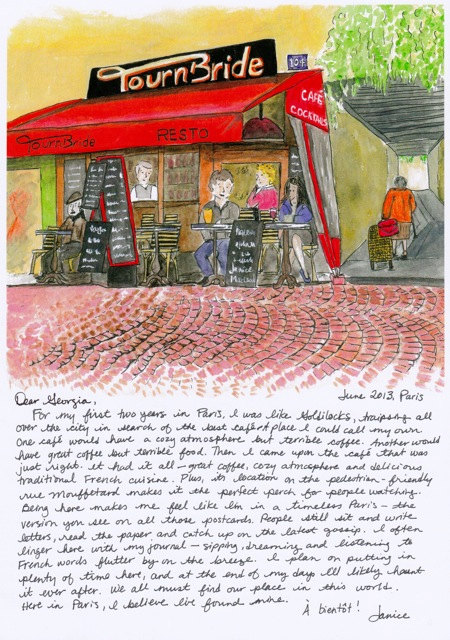 TournBride
104
CAFE
COCKTAILS
TournBride
RESTO
Dear Georgia,
June 2013, Paris
For my first two years in Paris, I was like Goldilocks, traipsing all
over the city in search of the best café & place I could call my own.
One café would have a cozy atmosphere but terrible coffee. Another would
have great coffee but terrible food. Then I came upon the café that was
just right. It had it all – great coffee, cozy atmosphere and delicious
traditional French cuisine. Plus, its location on the pedestrian-friendly
rue Mouffetard makes it the perfect perch for people watching.
Being here makes me feel like I'm in a timeless Paris – the
version you see on all those postcards. People still sit and write
letters, read the paper and catch up on the latest gossip. I often
linger here with my journal – sipping, dreaming, and listening to
French words flutter by on the breeze. I plan on putting in
plenty of time here, and at the end of my days I'll likely haunt
it ever after. We all must find our place in this world.
Here in Paris, I believe I've found mine.
À bientôt!
Janice